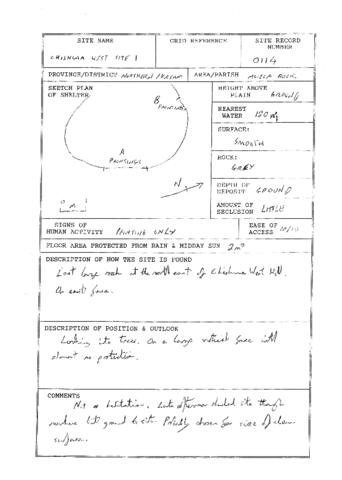 SITE NAME
GRID REFERENCE
SITE RECORD
NUMBER
WEST SITE 1
0114
PROVINCE/DISTRICT NORTHERN
AREA/PARISH
SKETCH PLAN
OF SHELTER
B
PAINTINGS
A
PAINTINGS
N
0 1
HEIGHT ABOVE
PLAIN GROUND
NEAREST
WATER 150 m
SURFACE:
SMOOTH
ROCK:
GREY
DEPTH OF
DEPOSIT GROUND
AMOUNT OF
SECLUSION LITTLE
SIGNS OF
HUMAN ACTIVITY PAINTING ONLY
EASE OF
ACCESS 10/10
FLOOR AREA PROTECTED FROM RAIN & MIDDAY SUN 2m²
DESCRIPTION OF HOW THE SITE IS FOUND
Last large rock at the north east of West Hill.
On east face.
DESCRIPTION OF POSITION & OUTLOOK
Looking into trees. On a large vertical face with
almost no protection.
COMMENTS
Not a habitation. Late afternoon shaded site though
ground to site. Probably chosen for size of clean
surface.